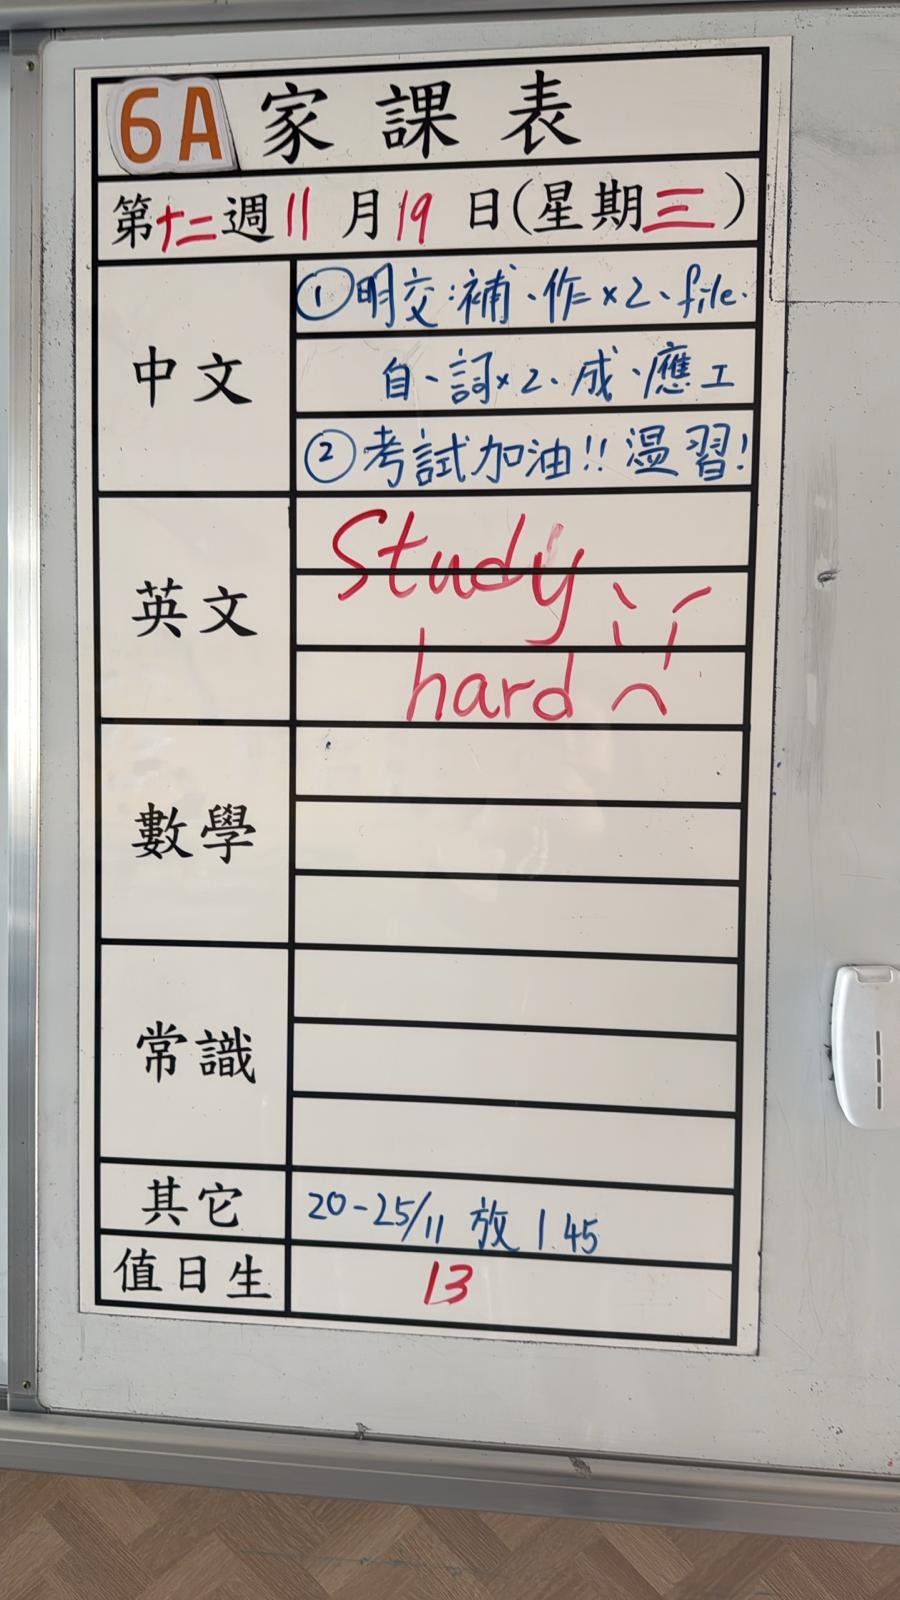 6A 家課表
第十二週 11月19日(星期三)
中文
①明交:補、作×2、file.
自、詞×2、成、應工
②考試加油!! 溫習!
英文
Study
hard
數學
常識
其它
20-25/11 放 1 45
值日生
13